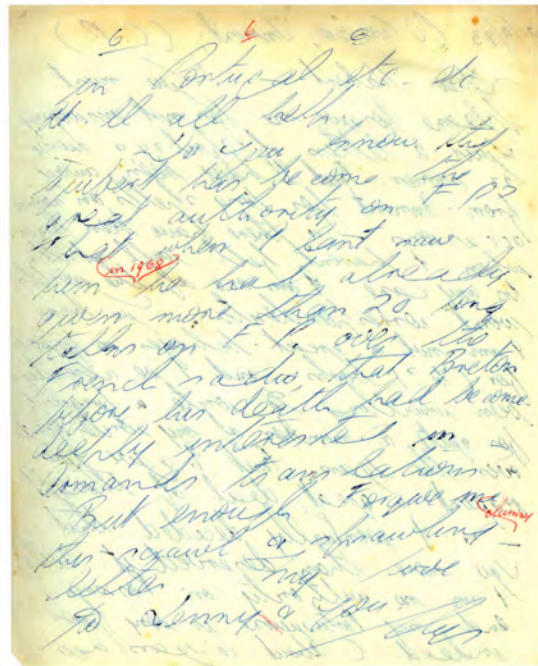 6 6 6
in Portugal etc. etc.
It'll all help.
Do you know that
Guibert has become the
great authority on F P?
that when I last saw
(in 1968)
him he had already
given more than 20 long
talks on F. P. over the
French radio, that Breton
before his death had become
deeply interested in
Armands translations.
But enough. Forgive me
clumsy
this scrawl & sprawling
letter. My love
to Jenny & you